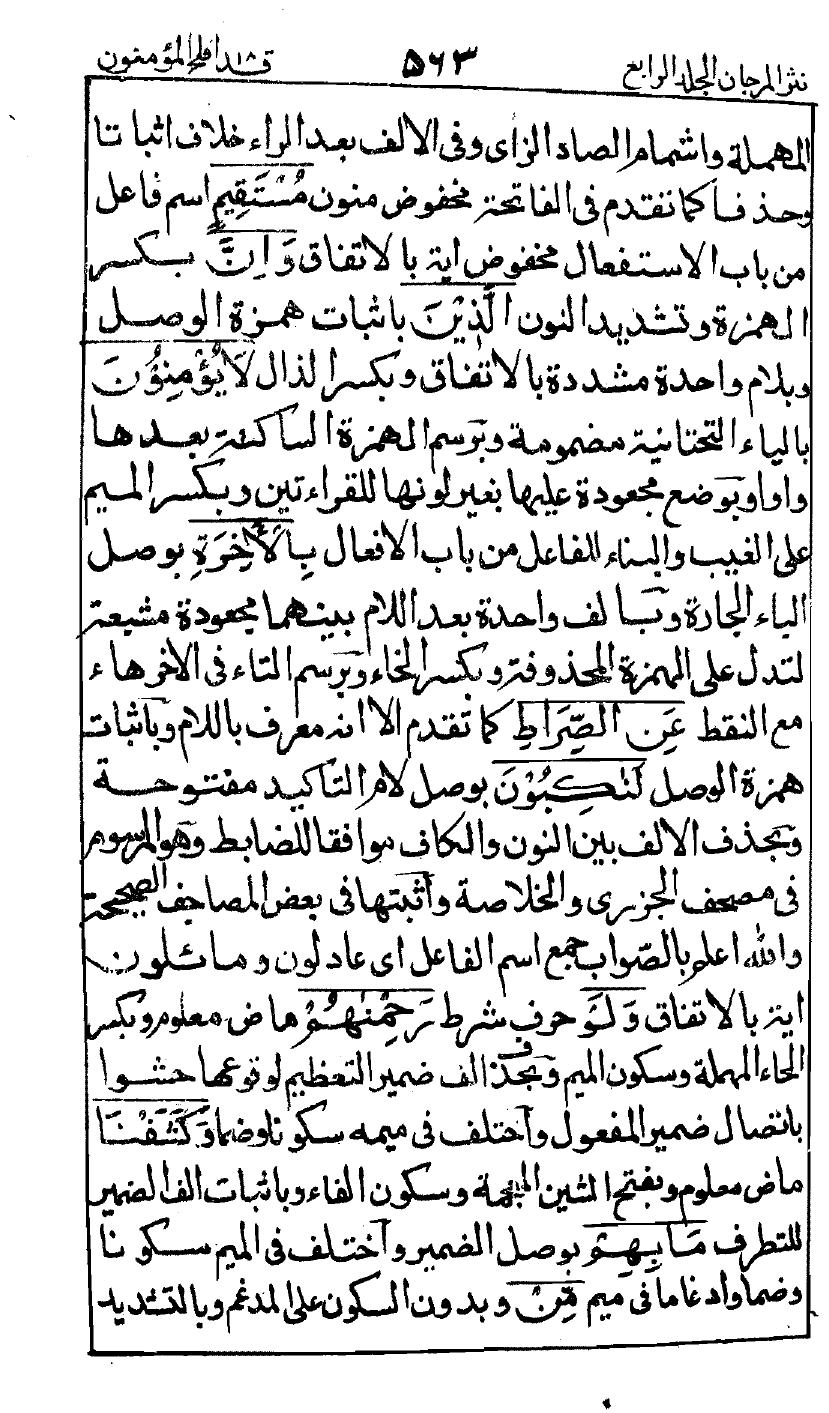 نثر المرجان الجلد الرابع ۵۶۳ قد افلح ۱۸ المؤمنون
المهملة واشمام الصاد الزاى وفى الالف بعد الراء خلاف اثباتا
وحذفا كما تقدم فى الفاتحة مخفوض منون مُسْتَقِيمٍ اسم فاعل
من باب الاستفعال مخفوض اية بالاتفاق وَاِنَّ بكسر
الهمزة وتشديد النون الَّذِيْنَ باثبات همزة الوصل
وبلام واحدة مشددة بالاتفاق وبكسر الذال لَا يُؤْمِنُوْنَ
بالياء التحتانية مضمومة وبرسم الهمزة الساكنة بعدها
واوا وبوضع مجعودة عليها بغير لونها للقراءتين وبكسر الميم
على الغيب والبناء للفاعل من باب الافعال بِالْاٰخِرَةِ بوصل
الباء الجارة وبالف واحدة بعد اللام بينهما مجعودة مشيعة
لتدل على الهمزة المحذوفة وبكسر الخاء وبرسم التاء فى الاخر هاء
مع النقط عَنِ الصِّرَاطِ كما تقدم الا انه معرف باللام وباثبات
همزة الوصل لَنٰكِبُوْنَ بوصل لام التاكيد مفتوحة
وبحذف الالف بين النون والكاف موافقا للضابط وهو المرسوم
فى مصحف الجزرى والخلاصة وأثبتها فى بعض المصاحف الصحيحة
والله اعلم بالصّواب جمع اسم الفاعل اى عادلون ومائلون
اية بالاتفاق وَلَوْ حرف شرط رَحِمْنٰهُمْ ماض معلوم وبكسر
الحاء المهملة وسكون الميم وبحذف الف ضمير التعظيم لوقوعها حشوا
باتصال ضمير المفعول وأختلف فى ميمه سكونا وضما وَكَشَفْنَا
ماض معلوم وبفتح الشين المعجمة وسكون الفاء وباثبات الف الضمير
للتطرف مَا بِهِمْ بوصل الضمير وأختلف فى الميم سكونا
وضما وادغاما فى ميم مِّنْ وبدون السكون على المدغم وبالتشديد